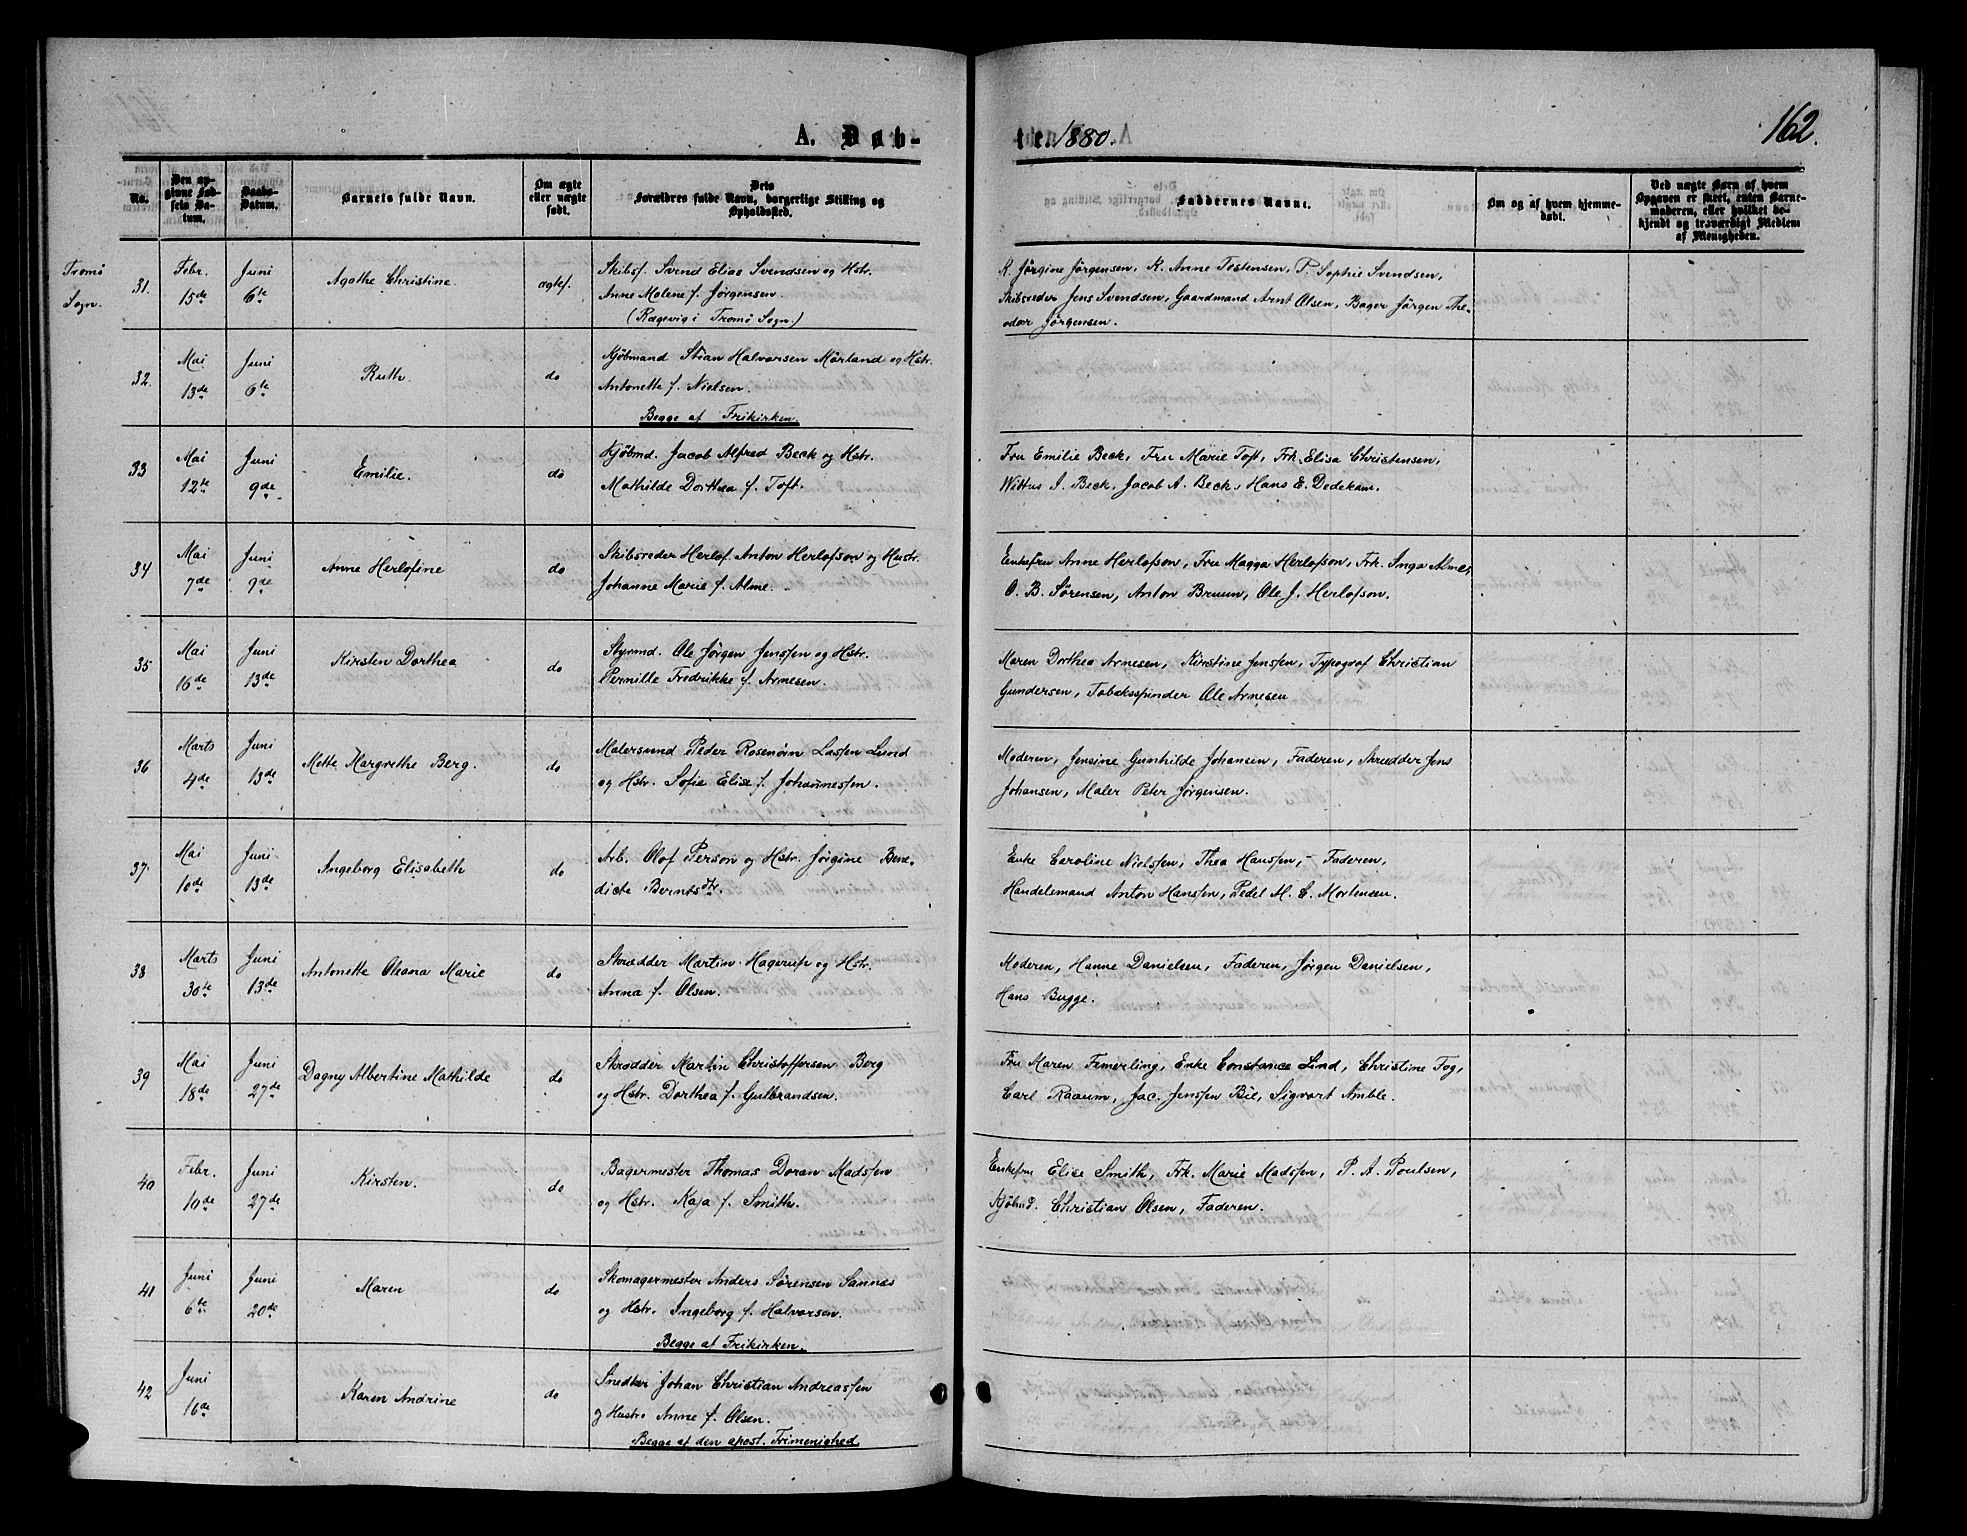 162.
A. Døb-
te. 1880.
No.
Den opgivne Fødsels Datum.
Daabs-Datum.
Barnets fulde Navn.
Om ægte eller uægte født.
Dets Forældres fulde Navn, borgerlige Stilling og Opholdssted.
Faddernes Navne.
Om og af hvem hjemmedøbt.
Ved uægte Børn af hvem Opgaven er skeet, enten Barnemoderen, eller hvilket bekjendt og troværdigt Medlem af Menigheden.
Tromö Sogn.
31. Febr. 15de Juni 6te Agathe Christine ægtef. Skibsf. Svend Elias Svendsen og Hstr.
Anne Malene f. Jörgensen.
(Rægevig i Tromö Sogn.)
K. Jörgine Jörgensen, K. Anne Tostensen, P. Sophie Svendsen,
Skibsreder Jens Svendsen, Gaardmand Arnt Olsen, Bager Jörgen The-
odor Jörgensen.
32. Mai 13de Juni 6te Ruth. do Kjöbmand Stian Halvorsen Mörland og Hstr.
Antonette f. Nielsen.
Begge af Frikirken.
33 Mai 12te Juni 9de Emilie. do Kjöbmd. Jacob Alfred Beck og Hstr.
Mathilde Dorthea f. Toft.
Fru Emilie Beck, Fru Marie Toft, Frk. Elisa Christensen,
Wittus J. Beck, Jacob A. Beck, Hans E. Dedekam.
34 Mai 7de Juni 9de Anne Herlofine do Skibsreder Herlof Anton Herlofson og Hustr.
Johanne Marie f. Alme.
Enkefru Anne Herlofson, Fru Magga Herlofson, Frk. Inga Alme,
O. B. Sörensen, Anton Bruun, Ole J. Herlofson.
35 Mai 16de Juni 13de Kirsten Dorthea do Styrmd. Ole Jörgen Jenssen og Hstr.
Pernille Fredrikke f. Arnesen.
Maren Dorthea Arnesen, Kirstine Jenssen, Typograf Christian
Gundersen, Tobaksspinder Ole Arnesen
36 Marts 4de Juni 13de Mette Margrethe Berg. do Malersvend Peder Rosenörn Lassen Lund
og Hstr. Sofie Elise f. Johannessen.
Moderen, Jensine Gunhilde Johansen, Faderen, Skrædder Jens
Johansen, Maler Peter Jörgensen.
37. Mai 10de Juni 13de Ingeborg Elisabeth do Arb. Olof Person og Hstr. Jörgine Bene-
dicte Berntsdtr.
Enke Caroline Nielssen, Thea Hanssen, Faderen,
Handelsmand Anton Hanssen, Pedel M. C. Mortensen.
38 Marts 30te Juni 13de Antonette Oleana Marie do Skrædder Martin Hagerup og Hstr.
Anna f. Olsen.
Moderen, Hanne Danielsen, Faderen, Jörgen Danielsen,
Hans Bugge.
39 Mai 18de Juni 27de Dagny Albertine Mathilde do Skrædder Martin Christoffersen Berg
og Hstr. Dorthea f. Gulbrandsen.
Fru Maren Femerling, Enke Constance Lind, Christine Tog,
Carl Raaum, Jac. Jenssen Bie, Sigvart Amble.
40 Febr. 10de Juni 27de Kirsten. do Bagermester Thomas Doran Madssen
og Hstr. Kaja f. Smith.
Enkefru Elise Smith, Frk. Marie Madssen, P. A. Poulsen,
Kjöbmd. Christian Olsen, Faderen.
41 Juni 6te Juni 20de Maren do Skomagermester Anders Sörensen Sannæs
og Hstr. Ingeborg f. Halvorsen.
Begge af Frikirken.
42 Juni 16de Karen Andrine do Snedker Johan Christian Andreassen
og Hustru Anne f. Olsen.
Begge af den apost. Frimenighed